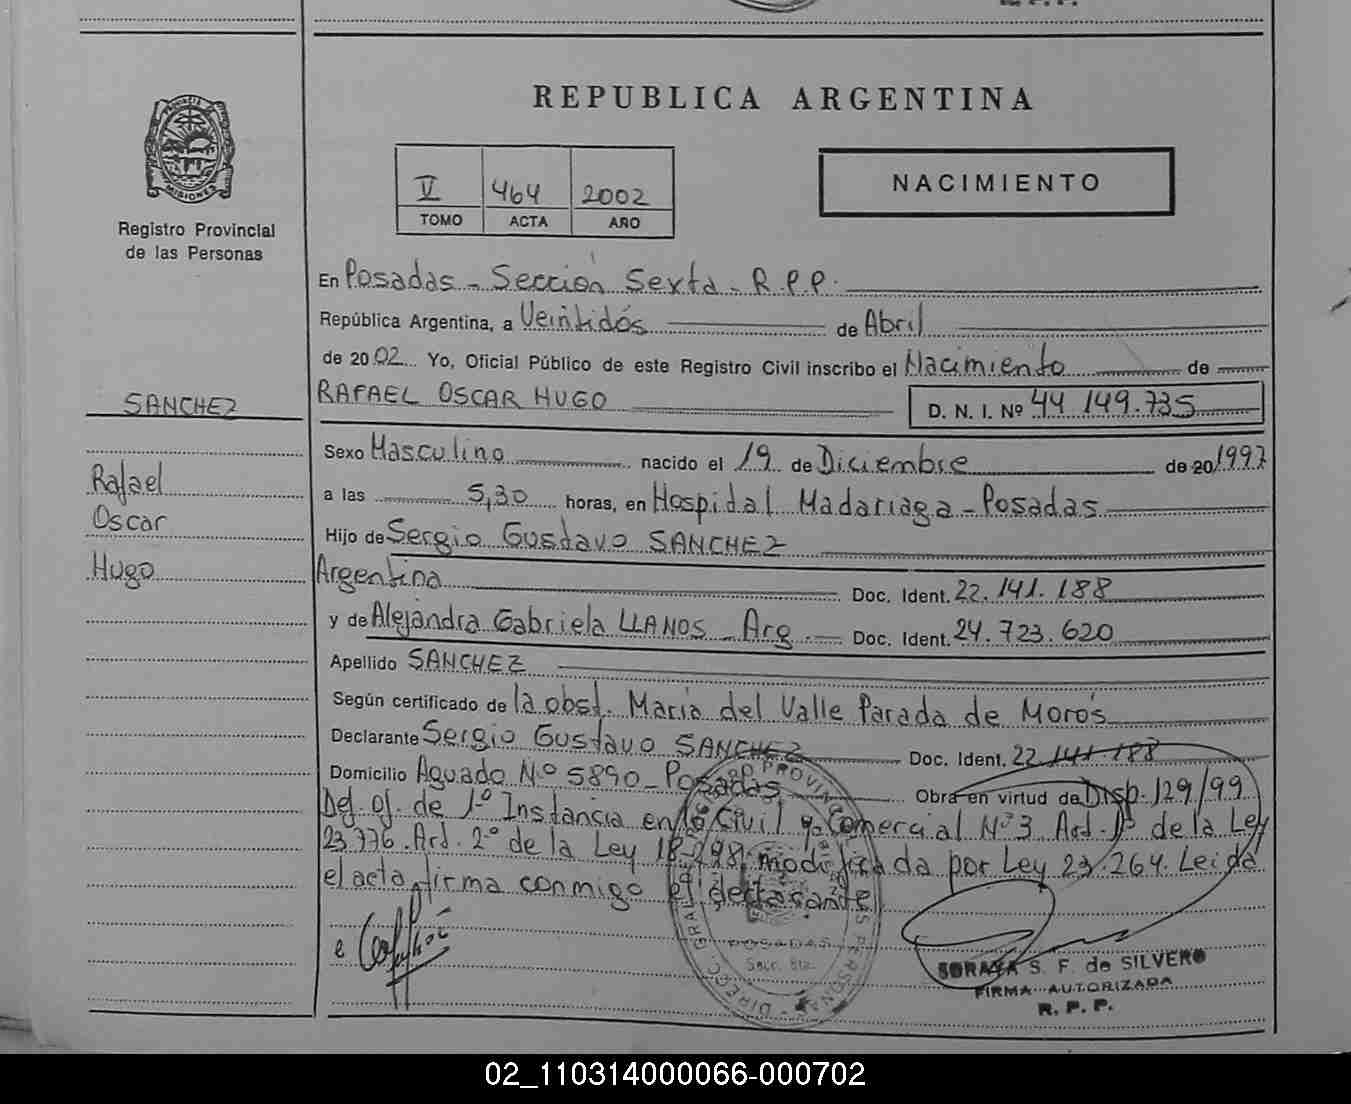 REPUBLICA ARGENTINA
PROVINCIA DE
MISIONES
Registro Provincial
de las Personas
V 464 2002
TOMO ACTA AÑO
NACIMIENTO
En Posadas - Sección Sexta - R.P.P.
República Argentina, a Veintidós de Abril
de 2002 Yo, Oficial Público de este Registro Civil inscribo el Nacimiento de
RAFAEL OSCAR HUGO D. N. I. Nº 44 149.735
SANCHEZ
Rafael
Oscar
Hugo
Sexo Masculino nacido el 19 de Diciembre de 20 1997
a las 5,30 horas, en Hospidal Madariaga - Posadas
Hijo de Sergio Gustavo SANCHEZ
Argentina Doc. Ident. 22.141.188
y de Alejandra Gabriela LLANOS - Arg. Doc. Ident. 24.723.620
Apellido SANCHEZ
Según certificado de la obst. María del Valle Parada de Morós
Declarante Sergio Gustavo SANCHEZ Doc. Ident. 22.141.188
Domicilio Aguado Nº 5890 - Posadas Obra en virtud de Disp. 129/99
Def. of. de 1º Instancia en lo Civil y Comercial Nº 3 Art. 1º de la Ley
23.776. Art. 2º de la Ley 18.248, modificada por Ley 23.264. Leída
el acta, firma conmigo el declarante
POSADAS
SORAYA S. F. de SILVERO
FIRMA AUTORIZADA
R. P. P.
02_110314000066-000702